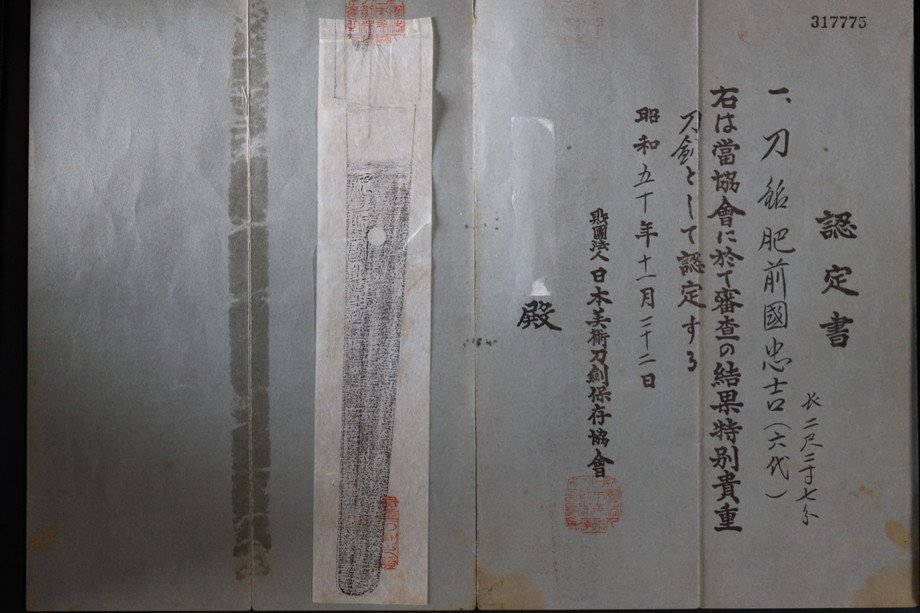 317775
認定書
一、刀 銘 肥前國忠吉(六代)
長二尺三寸七分
右は當協會に於て審査の結果特別貴重
刀劍として認定する
昭和五十年十一月二十二日
財團法人日本美術刀劍保存協會
殿